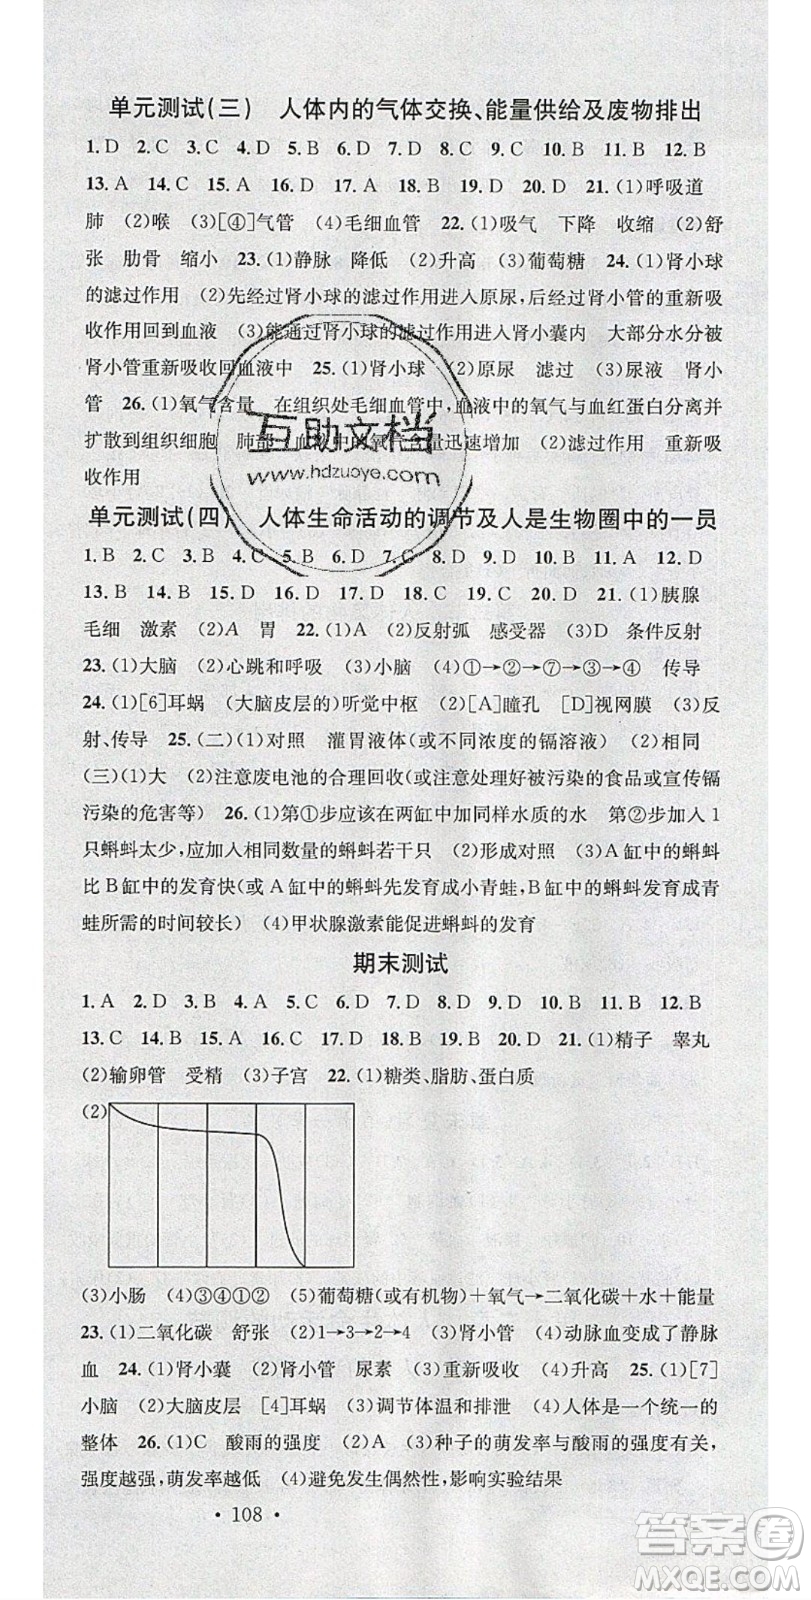 单元测试(三) 人体内的气体交换、能量供给及废物排出
1. D 2. C 3. C 4. D 5. B 6. D 7. D 8. C 9. C 10. B 11. B 12. B
13. A 14. C 15. A 16. D 17. A 18. C 19. D 20. D 21. (1)呼吸道
肺 (2)喉 (3)[④]气管 (4)毛细血管 22. (1)吸气 下降 收缩 (2)舒
张 肋骨 缩小 23. (1)静脉 降低 (2)升高 (3)葡萄糖 24. (1)肾小球
的滤过作用 (2)先经过肾小球的滤过作用进入原尿,后经过肾小管的重新吸
收作用回到血液 (3)能通过肾小球的滤过作用进入肾小囊内 大部分水分被
肾小管重新吸收回血液中 25. (1)肾小球 (2)原尿 滤过 (3)尿液 肾小
管 26. (1)氧气含量 在组织处毛细血管中,血液中的氧气与血红蛋白分离并
扩散到组织细胞 肺部 血液中的氧气含量迅速增加 (2)滤过作用 重新吸
收作用
单元测试(四) 人体生命活动的调节及人是生物圈中的一员
1. B 2. B 3. C 4. D 5. B 6. D 7. C 8. D 9. B 10. B 11. A 12. D
13. B 14. B 15. D 16. D 17. D 18. C 19. C 20. D 21. (1)胰腺
毛细 激素 (2)A 胃 22. (1)A (2)反射弧 感受器 (3)D 条件反射
23. (1)大脑 (2)心跳和呼吸 (3)小脑 (4)①→②→⑦→③→④ 传导
24. (1)[6]耳蜗 (大脑皮层的)听觉中枢 (2)[A]瞳孔 [D]视网膜 (3)反
射、传导 25. (二)(1)对照 灌胃液体(或不同浓度的镉溶液) (2)相同
(三)(1)大 (2)注意废电池的合理回收(或注意处理好被污染的食品或宣传镉
污染的危害等) 26. (1)第①步应该在两缸中加同样水质的水 第②步放入1
只蝌蚪太少,应加入相同数量的蝌蚪若干只 (2)形成对照 (3)A缸中的蝌蚪
比B缸中的发育快(或A缸中的蝌蚪先发育成小青蛙,B缸中的蝌蚪发育成青
蛙所需的时间较长) (4)甲状腺激素能促进蝌蚪的发育
期末测试
1. A 2. D 3. B 4. A 5. C 6. C 7. B 8. D 9. D 10. B 11. A 12. B
13. C 14. B 15. A 16. C 17. B 18. B 19. D 20. D 21. (1)精子 睾丸
(2)输卵管 受精 (3)子宫 22. (1)糖类、脂肪、蛋白质
(2)
(3)小肠 (4)③④①② (5)葡萄糖(或有机物)+氧气→二氧化碳+水+能量
23. (1)二氧化碳 舒张 (2)1→3→2→4 (3)肾小管 (4)动脉血变成了静脉
血 24. (1)肾小囊 (2)肾小管 尿素 (3)重新吸收 (4)升高 25. (1)[7]
小脑 (2)大脑皮层 [4]耳蜗 (3)调节体温和排泄 (4)人体是一个统一的
整体 26. (1)C 酸雨的强度 (2)A (3)种子的萌发率与酸雨的强度有关,
强度越强,萌发率越低 (4)避免发生偶然性,影响实验结果
• 108 •
互助文档
www.hdzuoye.com
答案圈
MXQE.COM